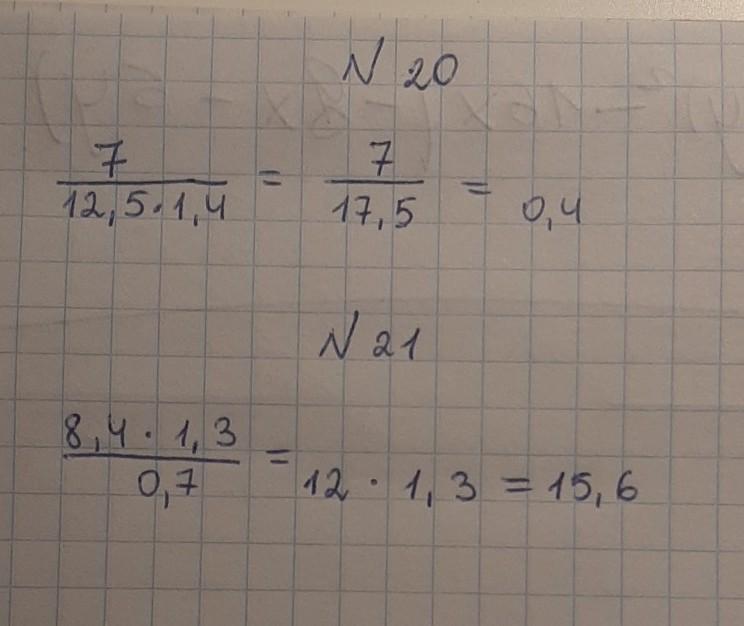 N 20
7/(12,5·1,4) = 7/17,5 = 0,4
N 21
(8,4 · 1,3)/0,7 = 12 · 1,3 = 15,6